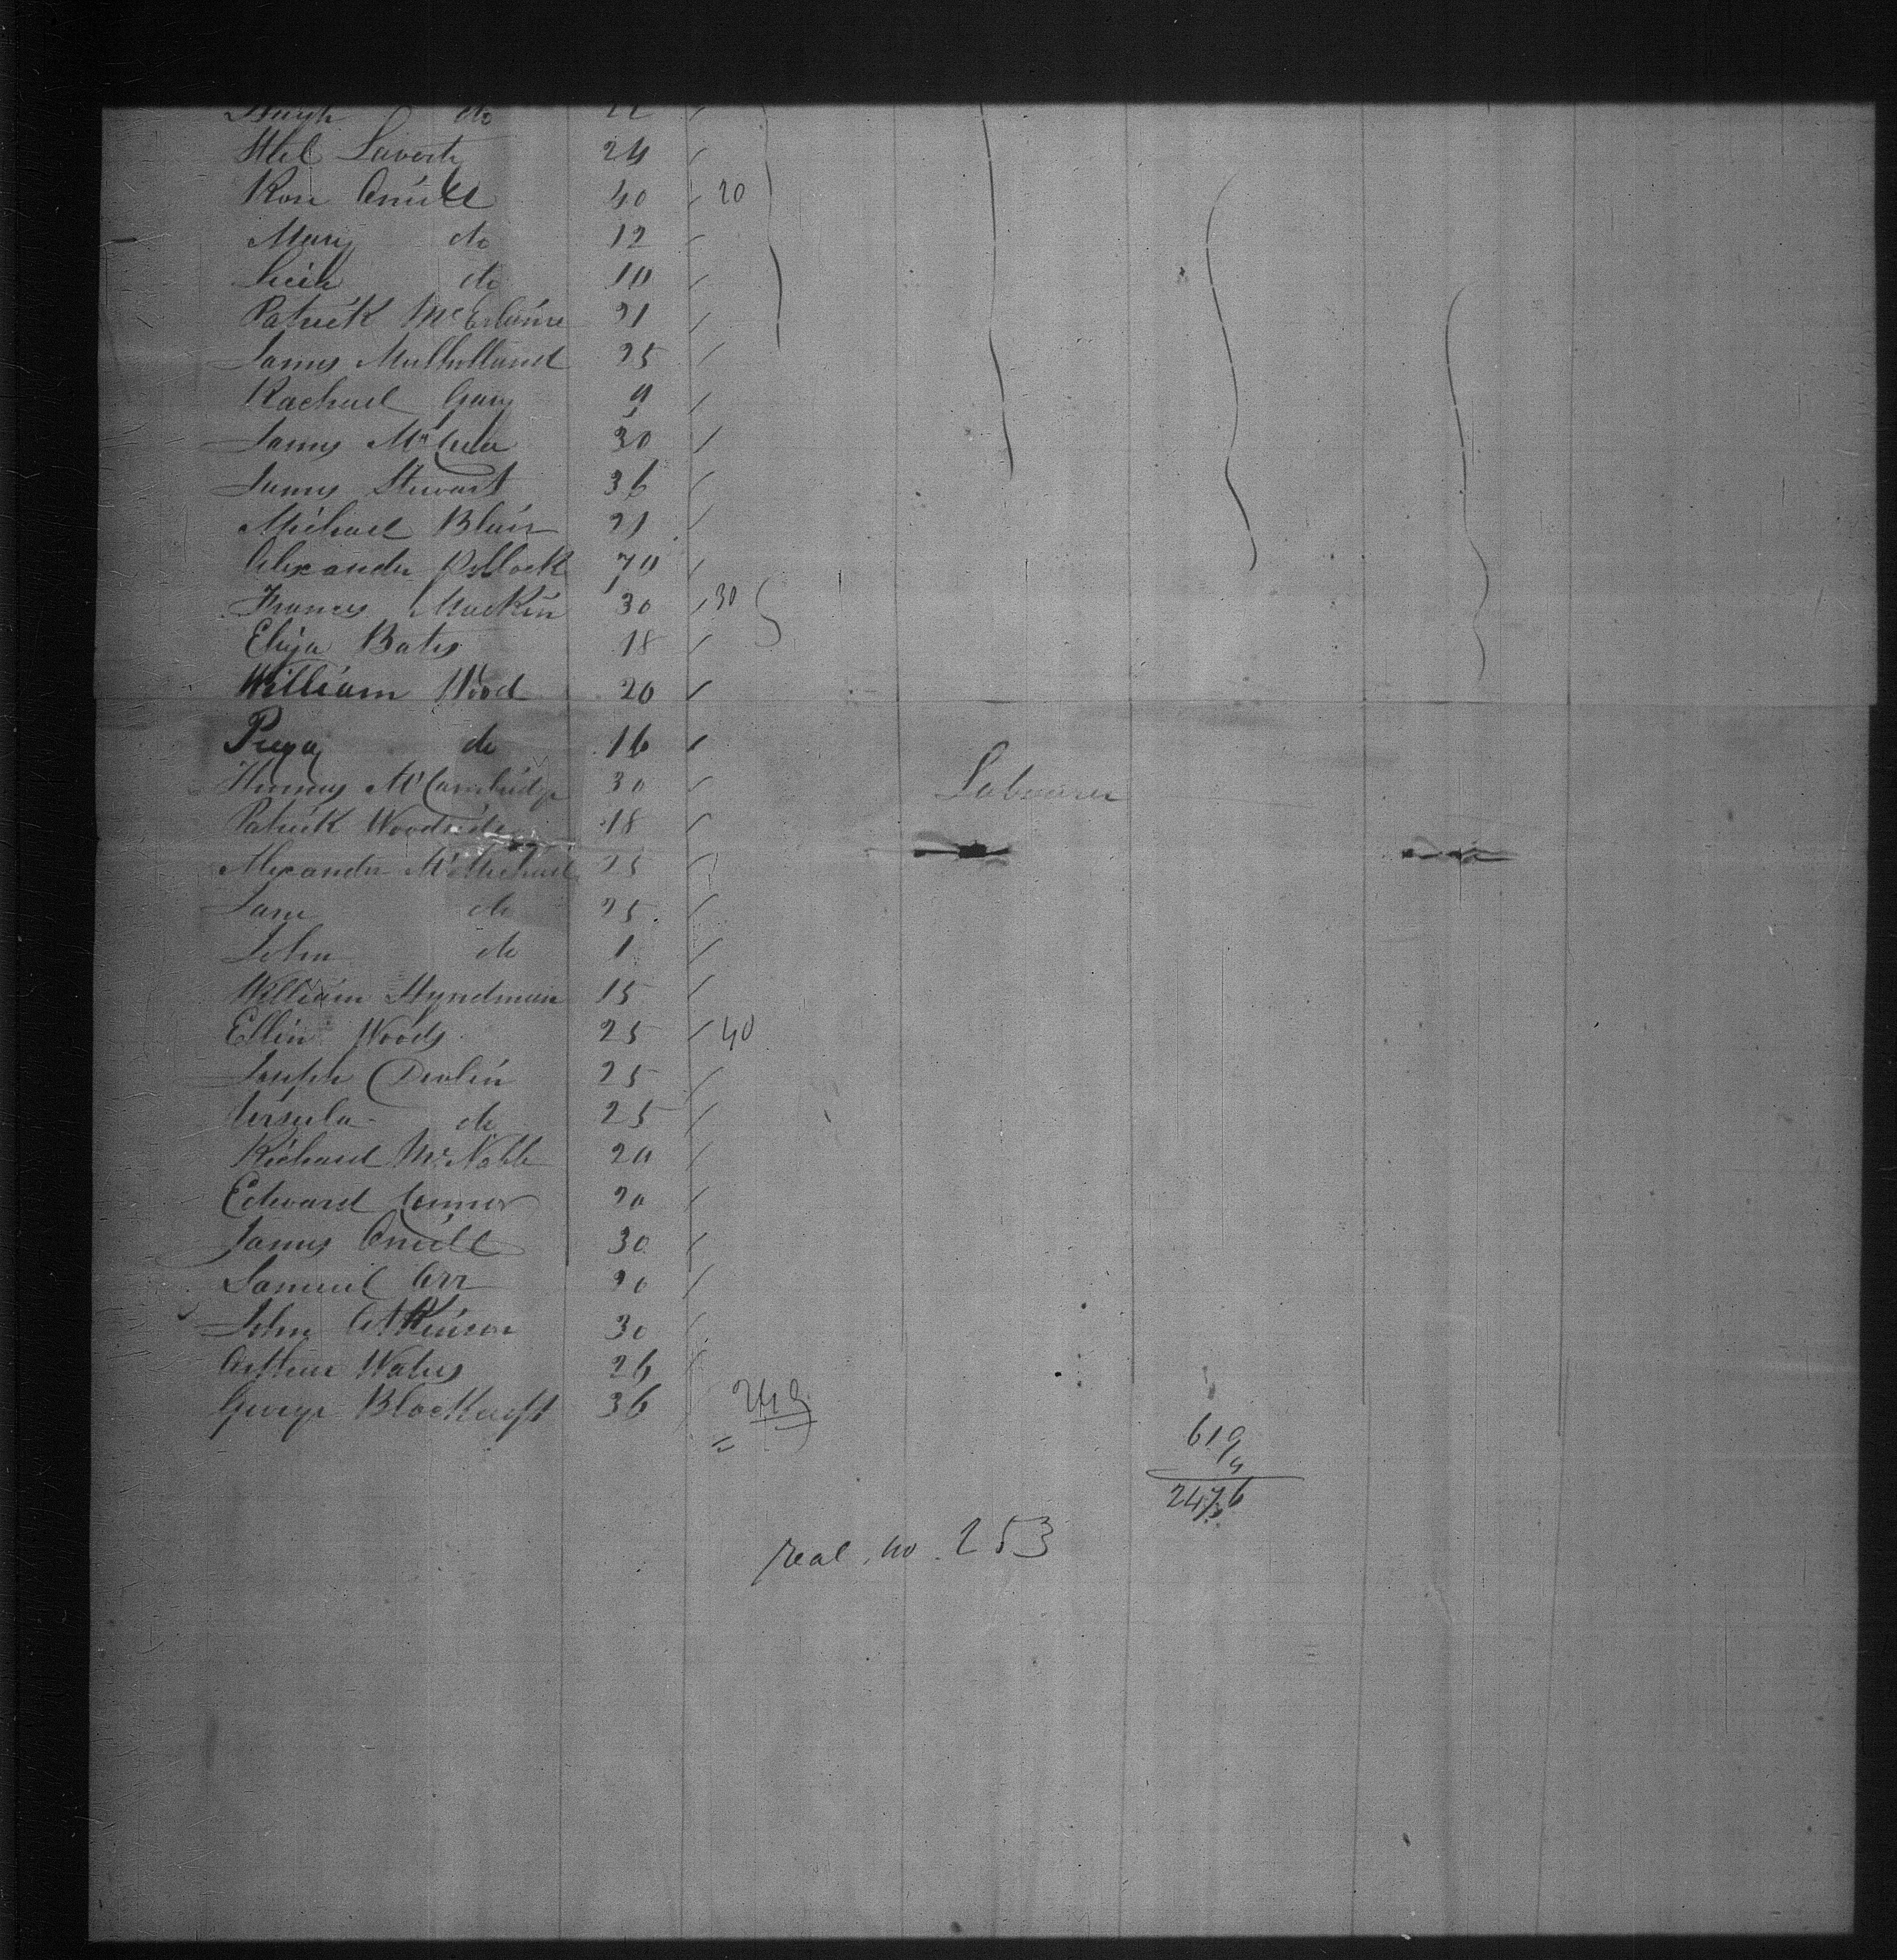 Hugh do 22
Abel Laverty 24
Rose Oneill 40 20
Mary do 12
do 10
Patrick McErlaine 21
James Mulholland 25
Rachael Gary 9
James McCula 30
James Stewart 36
Michael Blair 21
Alexander Pollock 70
Frances Mackin 30 30
Eliza Bates 18
William Wood 20
do 16
Thomas McCambridge 30 Labourer
Patrick Woodside 18
Alexander McMichael 25
Jane do 25
John do 1
William Hyndman 15
Ellin Woods 25 40
Joseph Devlin 25
Ursula do 25
Richard McNabb 20
Edward Connor 20
James Oneill 30
Samuel Orr 20
John Atkinson 30
Arthur Waters 26
George Blackcroft 36 249
619
4
2476
real no. 253